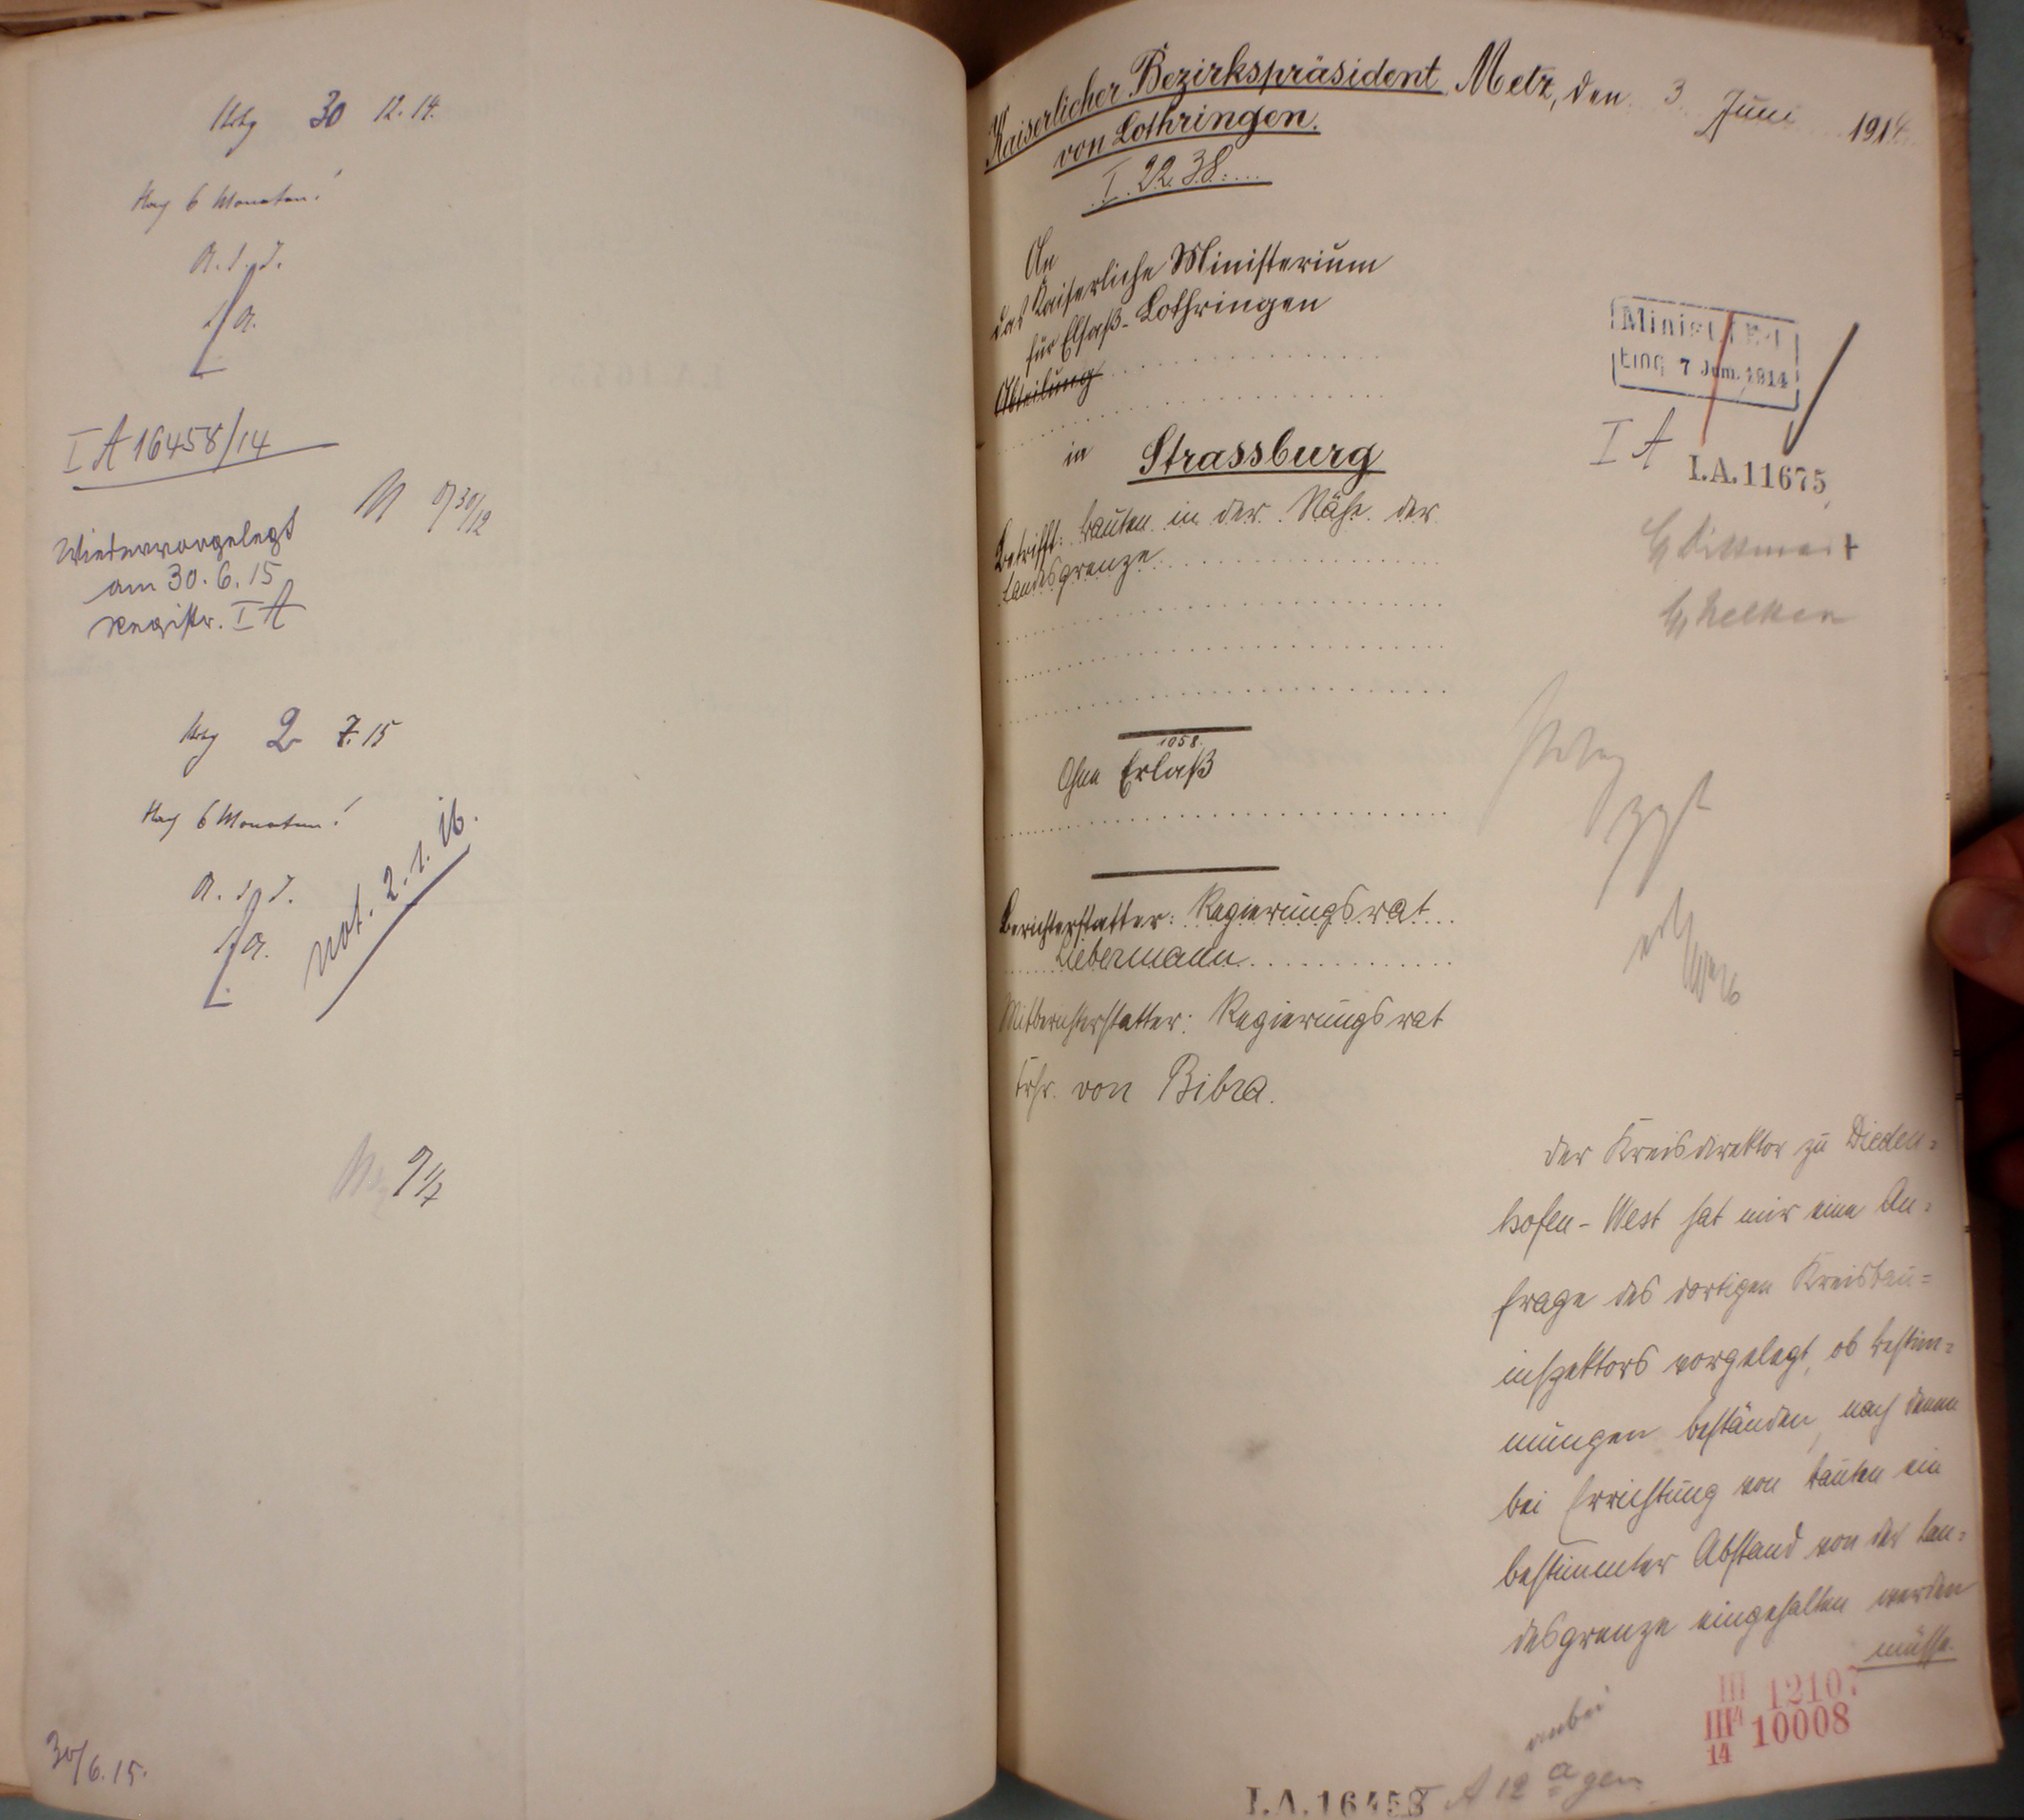 Strbg 30 12. 14.
Nach 6 Monaten!
I A 16458/14
Wiedervorgelegt
am 30. 6. 15
Registr. I A
30/12
Strbg 2 7. 15
Nach 6 Monaten!
not. 2. 1. 16.
30/6. 15.
Kaiserlicher Bezirkspräsident
von Lothringen.
I. 2238.
Metz, den 3 Juni 1914.
An
das Kaiserliche Ministerium
für Elsaß-Lothringen
Abteilung
in Strassburg
Eing 7 Juni. 1914
I A
I.A.11675
Betrifft: Bauten in der Nähe der
Landesgrenze
1058.
Ohne Erlaß
Berichterstatter: Regierungsrat
Liebermann
Mitberichterstatter: Regierungsrat
Frhr. von Bibra.
Der Kreisdirektor zu Dieden=
hofen-West hat mir eine An=
frage des dortigen Kreisbau=
inspektors vorgelegt, ob Bestim=
mungen beständen, nach denen
bei Errichtung von Bauten ein
bestimmter Abstand von der Lan=
desgrenze eingehalten werden
müsse.
III 12107
III 14 10008
anbei
I.A.16458
A 12 a gen.